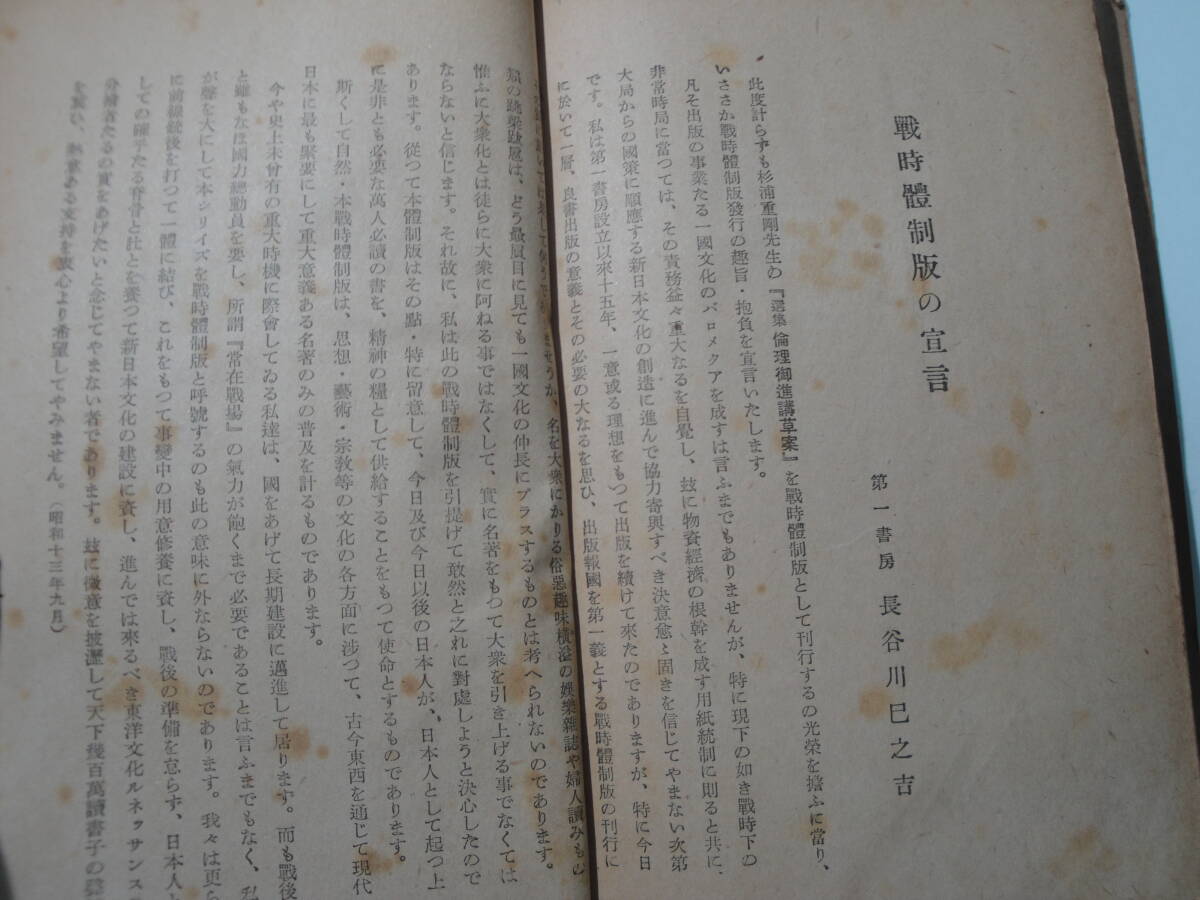 戰時體制版の宣言
第一書房 長谷川巳之吉
此度計らずも杉浦重剛先生の『選集倫理御進講草案』を戰時體制版として刊行するの光榮を擔ふに當り、
いささか戰時體制版發行の趣旨・抱負を宣言いたします。
凡そ出版の事業たる一國文化のバロメクアを成すは言ふまでもありませんが、特に現下の如き戰時下の
非常時局に當つては、その責務益々重大なるを自覺し、玆に物資經濟の根幹を成す用紙統制に則ると共に、
大局からの國策に順應する新日本文化の創造に進んで協力寄與すべき決意愈〻固きを信じてやまない次第
です。私は第一書房設立以來十五年、一意或る理想をもつて出版を續けて來たのでありますが、特に今日
に於いて一層、良書出版の意義とその必要の大なるを思ひ、出版報國を第一義とする戰時體制版の刊行に
ませうか、名を大衆にかりる俗惡趣味橫溢の娛樂雜誌や婦人讀みもの
類の跳梁跋扈は、どう贔屓目に見ても一國文化の伸長にプラスするものとは考へられないのであります。
惟ふに大衆化とは徒らに大衆に阿ねる事ではなくして、實に名著をもつて大衆を引き上げる事でなくては
ならないと信じます。それ故に、私は此の戰時體制版を引提げて敢然と之れに對處しようと決心したので
あります。從つて本體制版はその點・特に留意して、今日及び今日以後の日本人が、日本人として起つ上
に是非とも必要な萬人必讀の書を、精神の糧として供給することをもつて使命とするものであります。
斯くして自然・本戰時體制版は、思想・藝術・宗敎等の文化の各方面に涉つて、古今東西を通じて現代
日本に最も緊要にして重大意義ある名著のみの普及を計るものであります。
今や史上未曾有の重大時機に際會してゐる私達は、國をあげて長期建設に邁進して居ります。而も戰後
と雖もなほ國力總動員を要し、所謂『常在戰場』の氣力が飽くまで必要であることは言ふまでもなく、私
が聲を大にして本シリイズを戰時體制版と呼號するのも此の意味に外ならないのであります。我々は更ら
に前線銃後を打つて一體に結び、これをもつて事變中の用意修養に資し、戰後の準備を怠らず、日本人と
しての確乎たる骨骨と壯とを養つて新日本文化の建設に資し、進んでは來るべき東洋文化ルネッサンス
たるの實をあげたいと念じてやまない者であります。玆に微意を披瀝して天下幾百萬讀書子の
を願ひ、ある支持を衷心より希望してやみません。(昭和十三年九月)